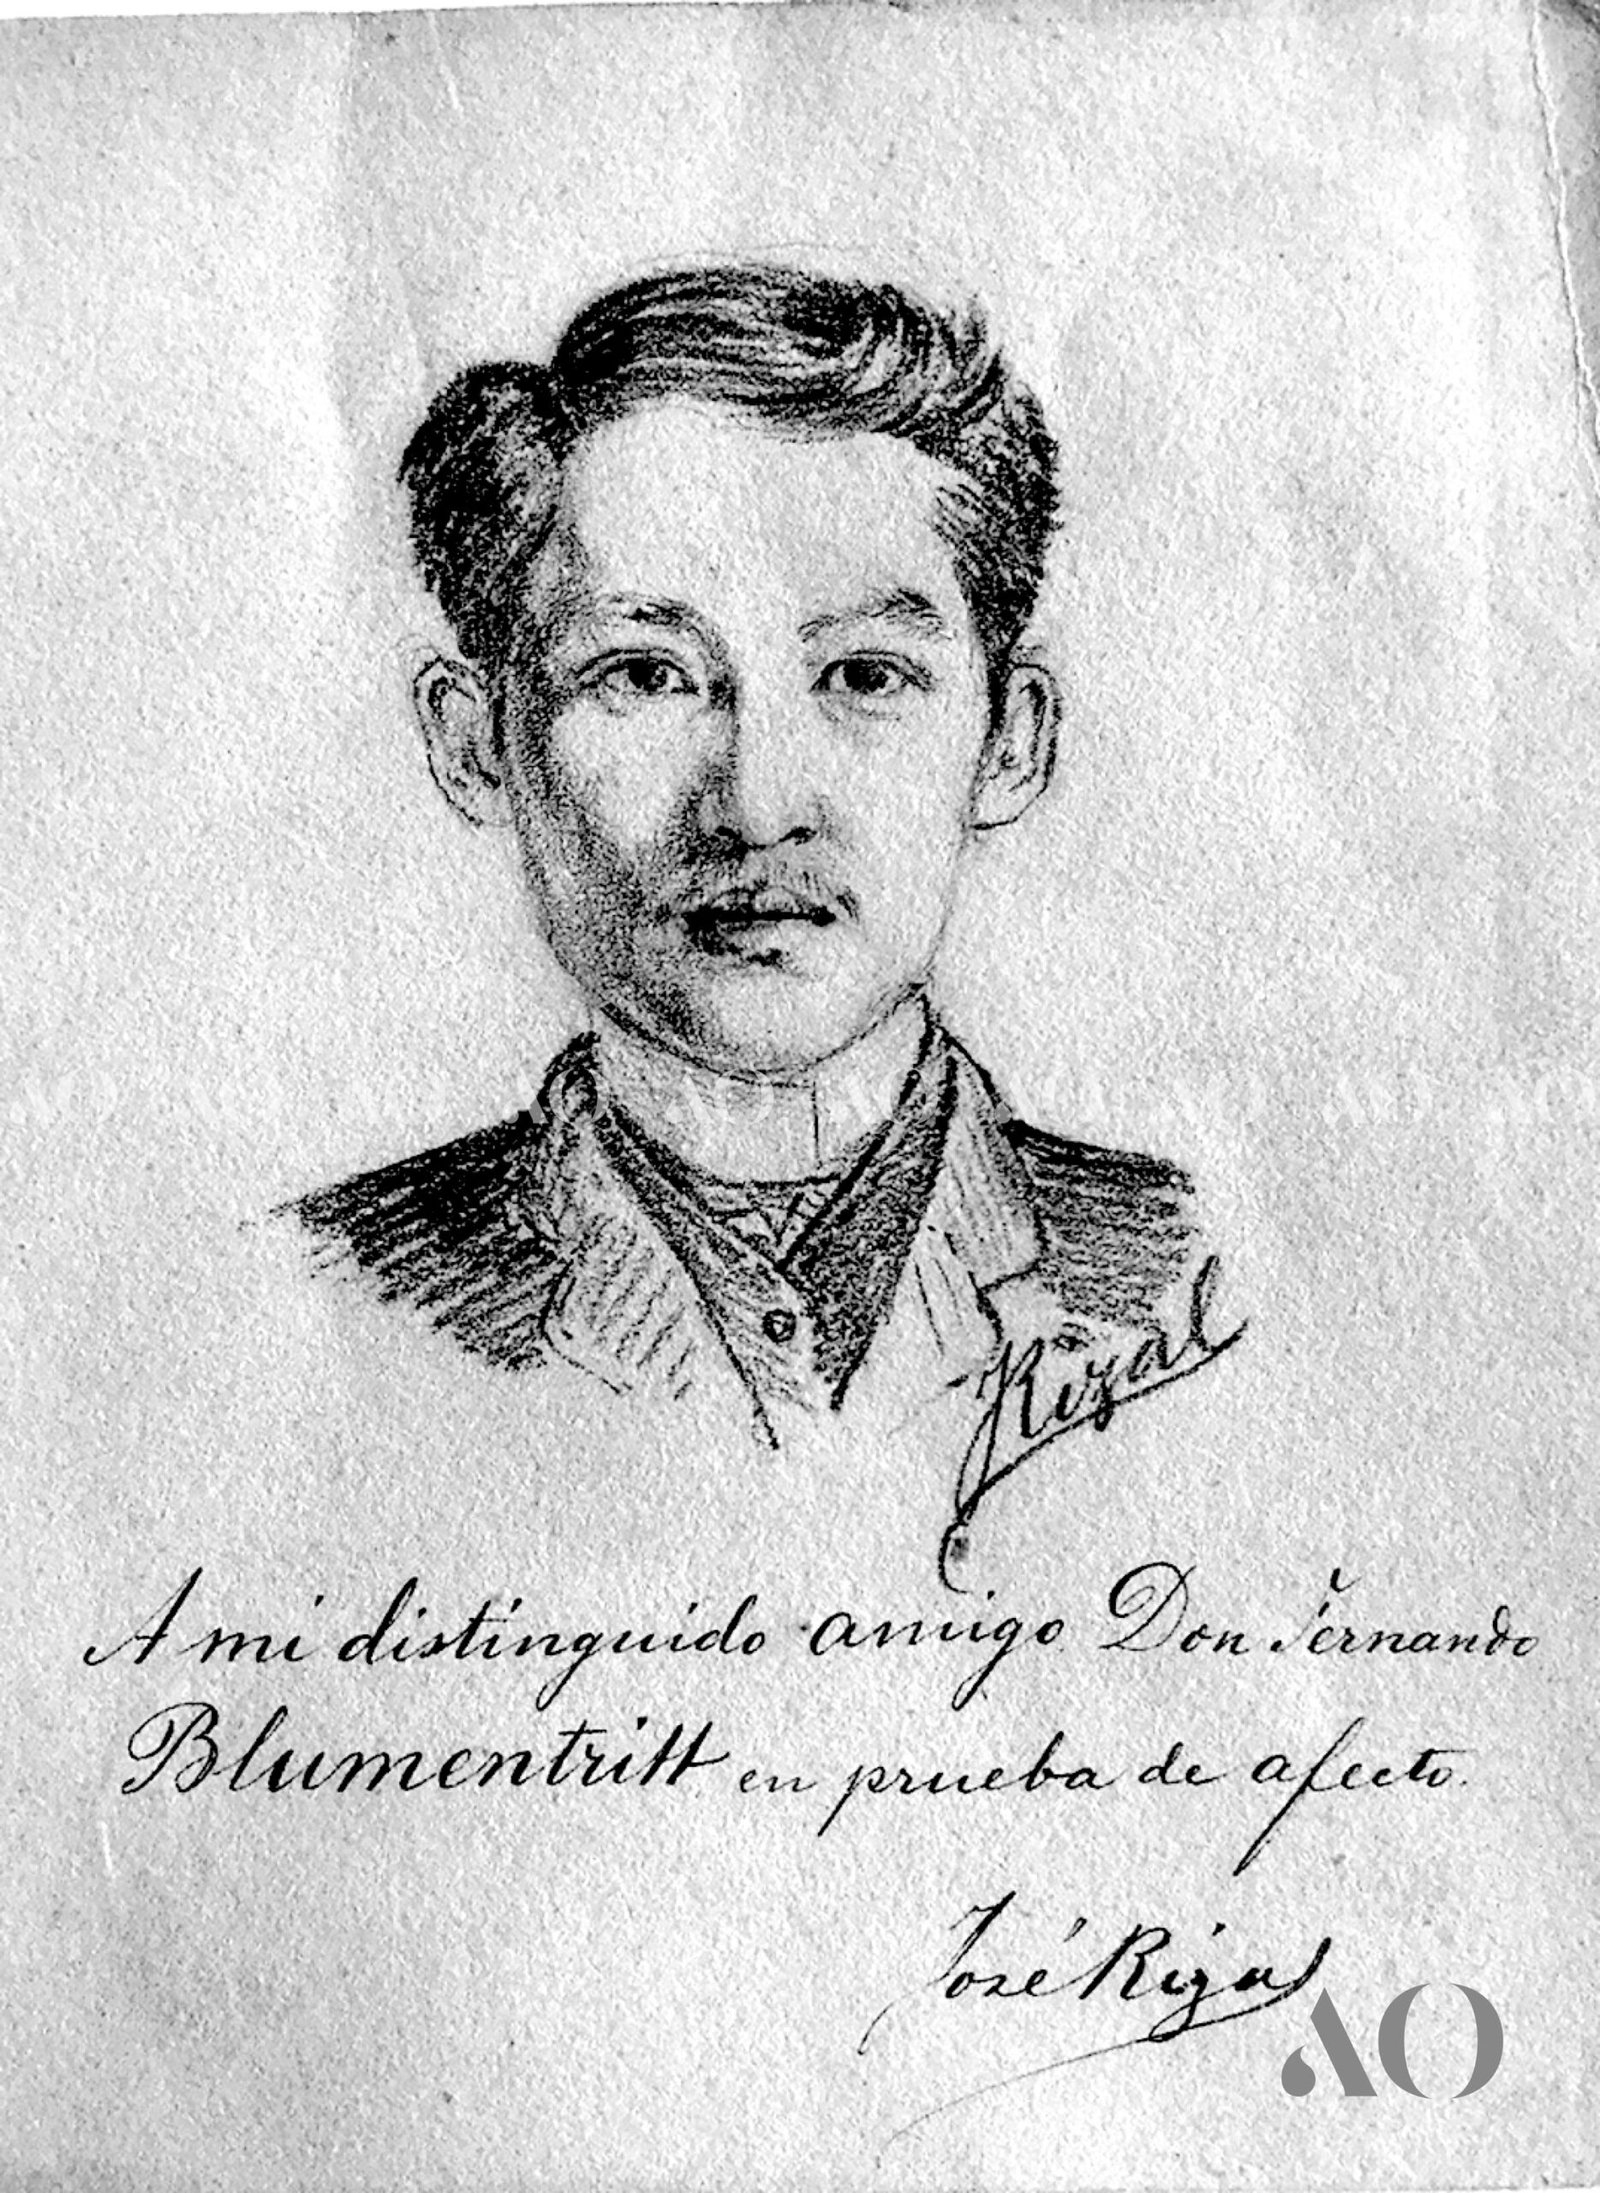 Rizal
A mi distinguido amigo Don Fernando
Blumentritt en prueba de afecto.
José Rizal
AO